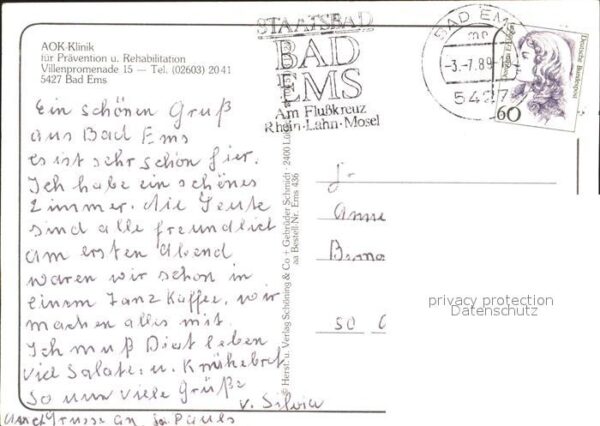 AOK-Klinik
für Prävention u. Rehabilitation
Villenpromenade 15 — Tel. (02603) 20 41
5427 Bad Ems
STAATSBAD
BAD
EMS
Am Flußkreuz
Rhein·Lahn·Mosel
BAD EMS
me
-3.-7.89-1
5427
Deutsche Bundespost
60
Ein schönen Gruß
aus Bad Ems
es ist sehr schön hier.
Ich habe ein schönes
Zimmer. die Leute
sind alle freundlich
am ersten Abend
waren wir schon in
einem Tanz Kaffee, wir
machen alles mit.
Ich muß Diät leben
viel Salate u. Knäkebrot
So nun viele Grüße
v. Silvia
Grüsse an Pauls
© Herst. u. Verlag Schöning & Co + Gebrüder Schmidt · 2400
aa Bestell-Nr. Ems 436
Anne
50
privacy protection
Datenschutz